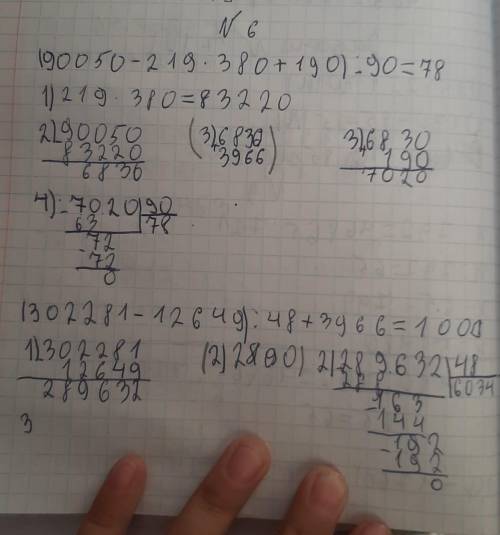 N 6
(90050 - 219 · 380 + 190) : 90 = 78
1) 219 · 380 = 83220
2) 90050 (3) 6830 3) 6830
83220 3966) 190
6830 7020
4) - 7020 90
63 78
72
- 72
0
(302281 - 12649) : 48 + 3966 = 1000
1) 302281 (2) 2890) 2) 289632 48
12649 288 6034
289632 - 163
144
3 - 192
192
0